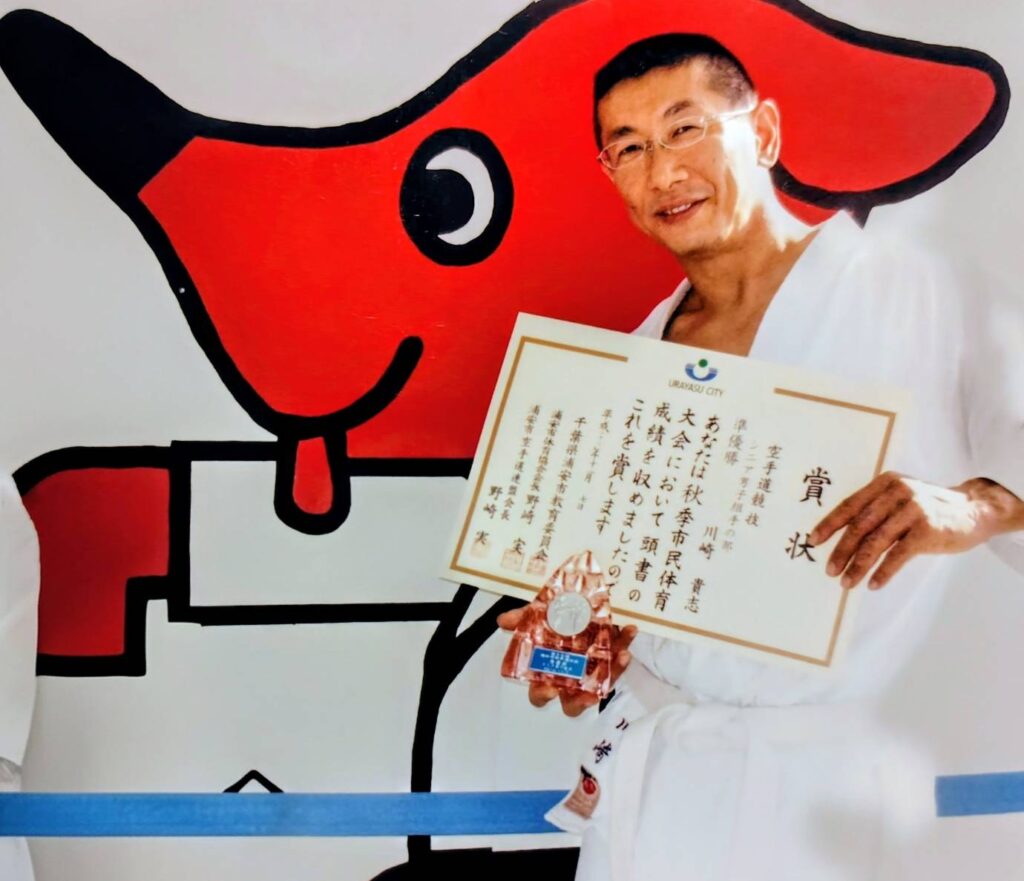 URAYASU CITY
賞状
空手道競技
シニア男子組手の部
準優勝 川崎 貴志
あなたは秋季市民体育
大会において頭書の
成績を収めましたので
これを賞します
千葉県浦安市教育委員会
浦安市体育協会会長 野崎 実
浦安市空手道連盟会長 野崎 実
川崎